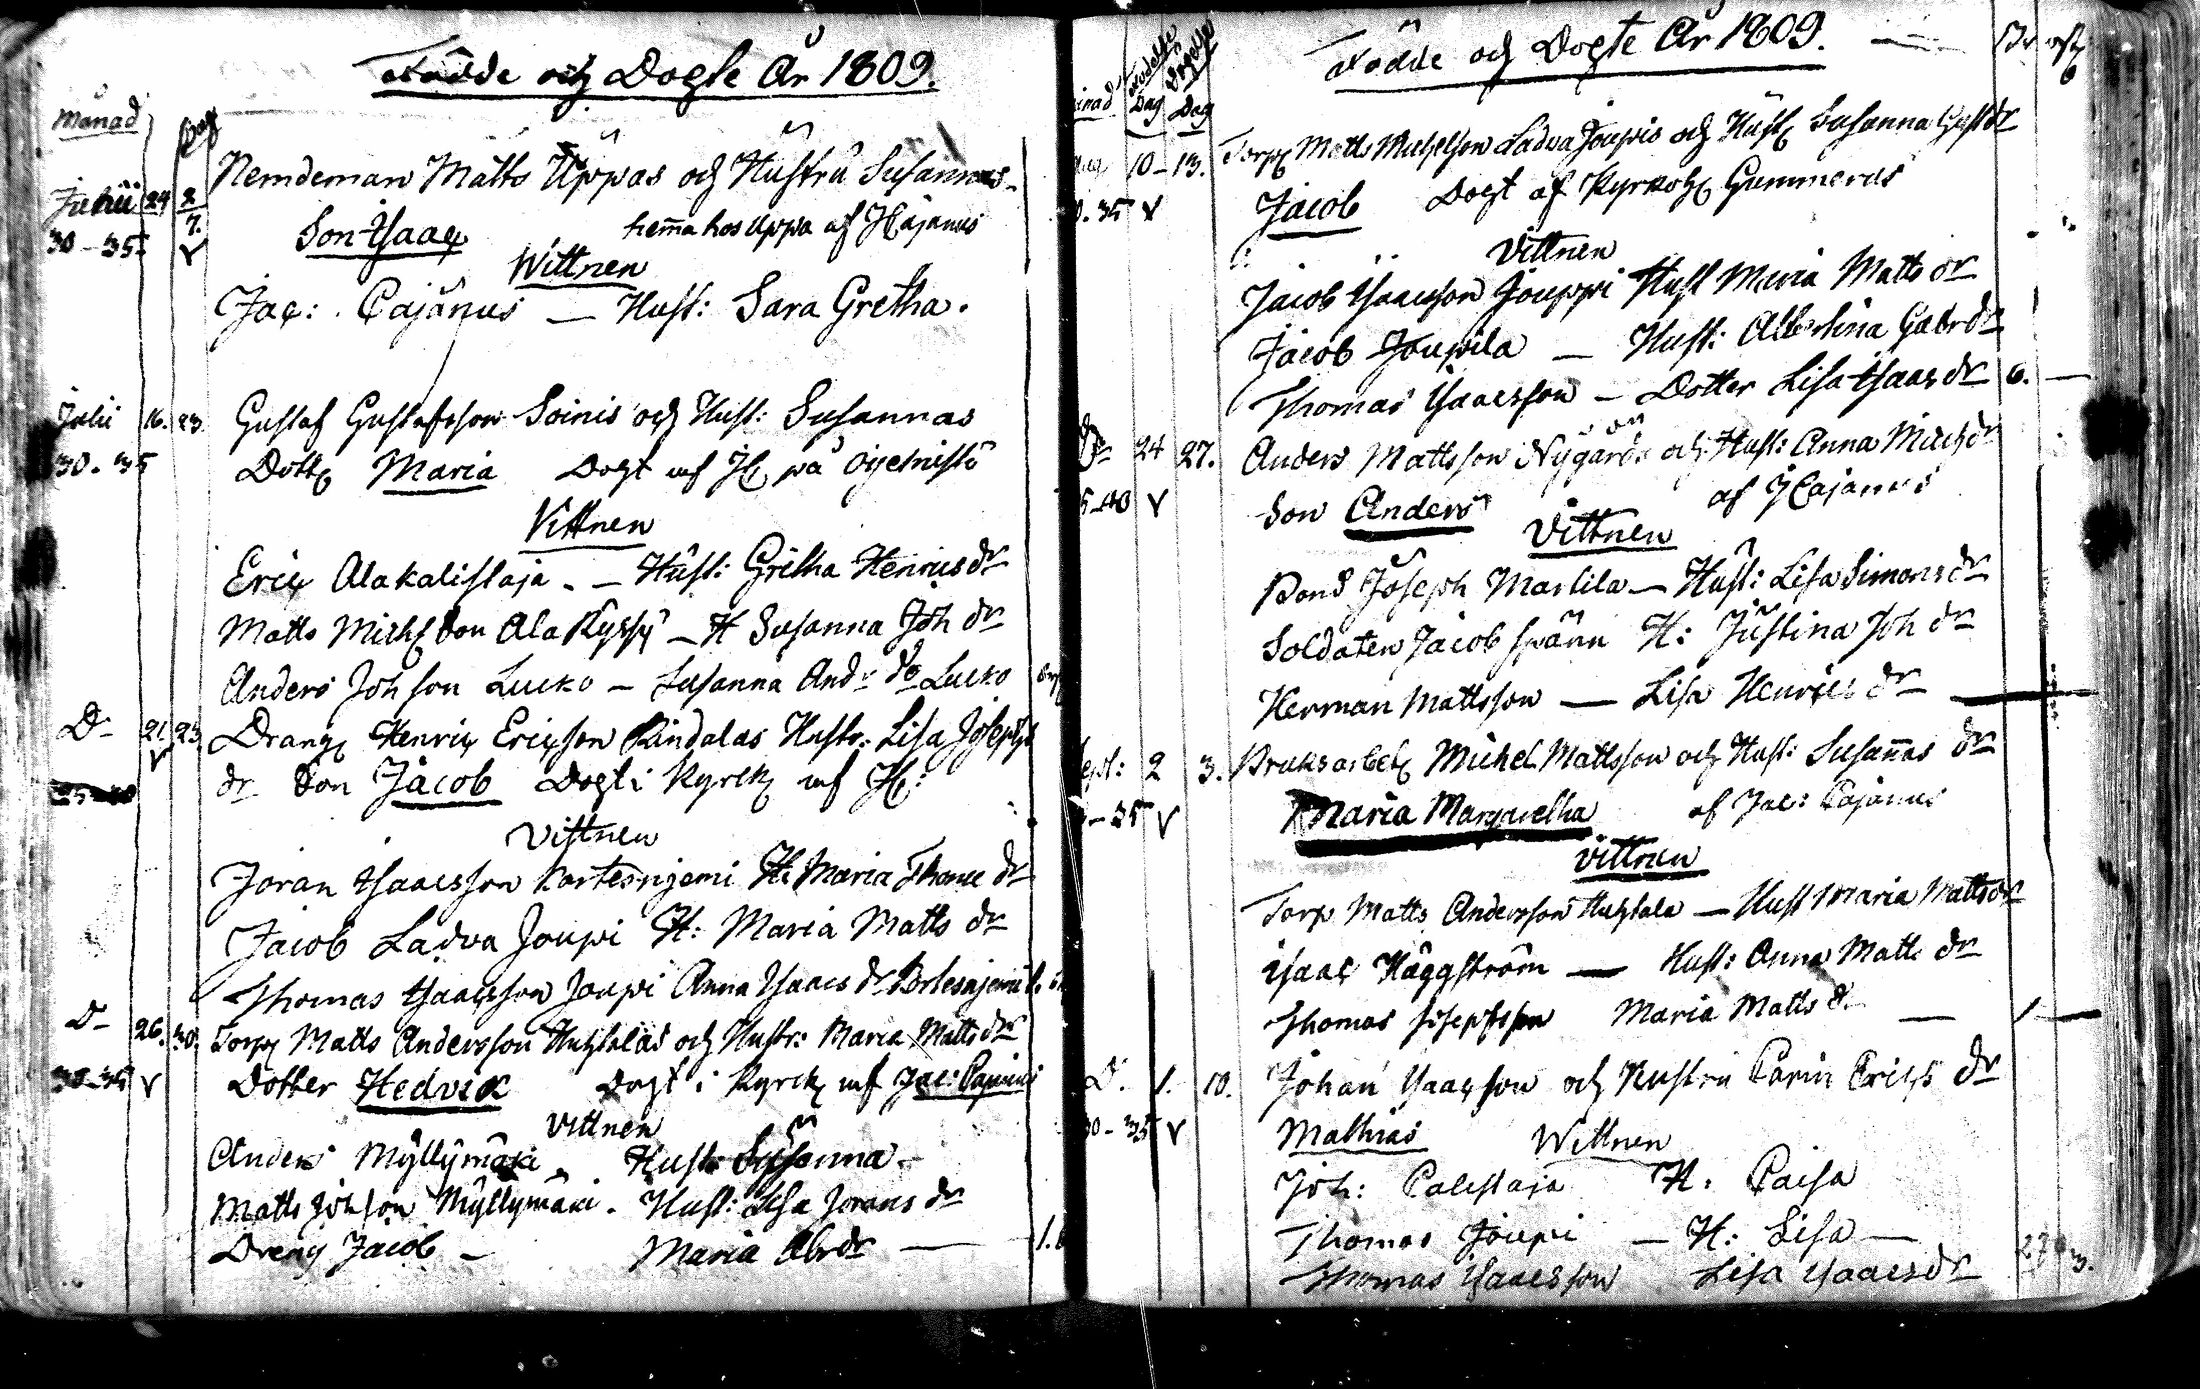 Födde och Döpte År 1809.
Månad Dag
Nemdeman Matts Üppas och Hustru Susannas
Junii 24 2/7. Son Isaac hema hos Uppa af J Cajanus
30-35. V
Wittnen
Jac: Cajanus — Hust: Sara Gretha.
Julii 16. 23. Gustaf Gustafsson Soinis och Hust: Susannas
30-35 Dott Maria Döpt af JC på
Vittnen
Eric Alakalistaja - Hust: Gretha Henricsdr
Matts Michson Ala Kyyny - H Susanna Joh dr
Anders Joh son Lucko — Susanna And dr Lucko
Dr 21 23 Dräng Henric Ericsson Rindalas Hustr: Lisa Josephs
V
dr Son Jacob Döpt i Kyrck af JC:
Vittnen
Joran Isaacsson Kortesnjemi H: Maria Thome dr
Jacob Ladva Joupi H: Maria Matts dr
Thomas Isaacsson Joupi Anna Isaacs dr
Dr 26. 30. Torp Matts Andersson Huhtalas och Hustr: Maria Matts dr
30-35 V Dotter Hedvik Döpt i Kyrck af Jac: Cajanus
Vittnen
Anders Myllymäki Hust: Susanna
Matts Johson Myllymäki. Hust: Lisa Jorans dr
Dreng Jacob — Maria Abrdr —
Födde och Döpte År 1809.
Födelse Dag Döpelse Dag
Aug 10-13. Torp Matts Michelson Ladva Joupis och Hust Susanna Gust dr
30.35 V Jacob Döpt af Kyrkoh Gummerus
Vittnen
Jacob Isaacsson Jouppi Hust Maria Matts dr
Jacob Joupila — Hust: Albertina Gabrdr
Thomas Isaacsson — Dotter Lisa Isaacs dr 6. —
Dr 24 27. Anders Mattsson Nygårds och Hust: Anna Michdr
V Son Anders af J Cajanus
Vittnen
Bond Joseph Marlila — Hust: Lisa Simonsdr
Soldaten Jacob Spänn H: Justina Joh dr
Herman Mattsson — Lisa Henrics dr —
Sept: 2 3. Bruksarbet Michel Mattsson och Hust: Susañas dr
-35 V Maria Margaretha af Jac: Cajanus
Vittnen
Torp Matts Andersson Huhtala — Hust Maria Matts dr
Isaac Häggström — Hust: Anna Matts dr
Thomas Josephsson Maria Matts d. — 1 —
D. 1. 10. Johan Isaacsson och Hustru Carin Erics dr
30-35 V Mathias Wittnen
Joh: Calistaja H: Caisa
Thomas Joupi — H: Lisa —
Thomas Isaacsson Lisa Isaacsdr